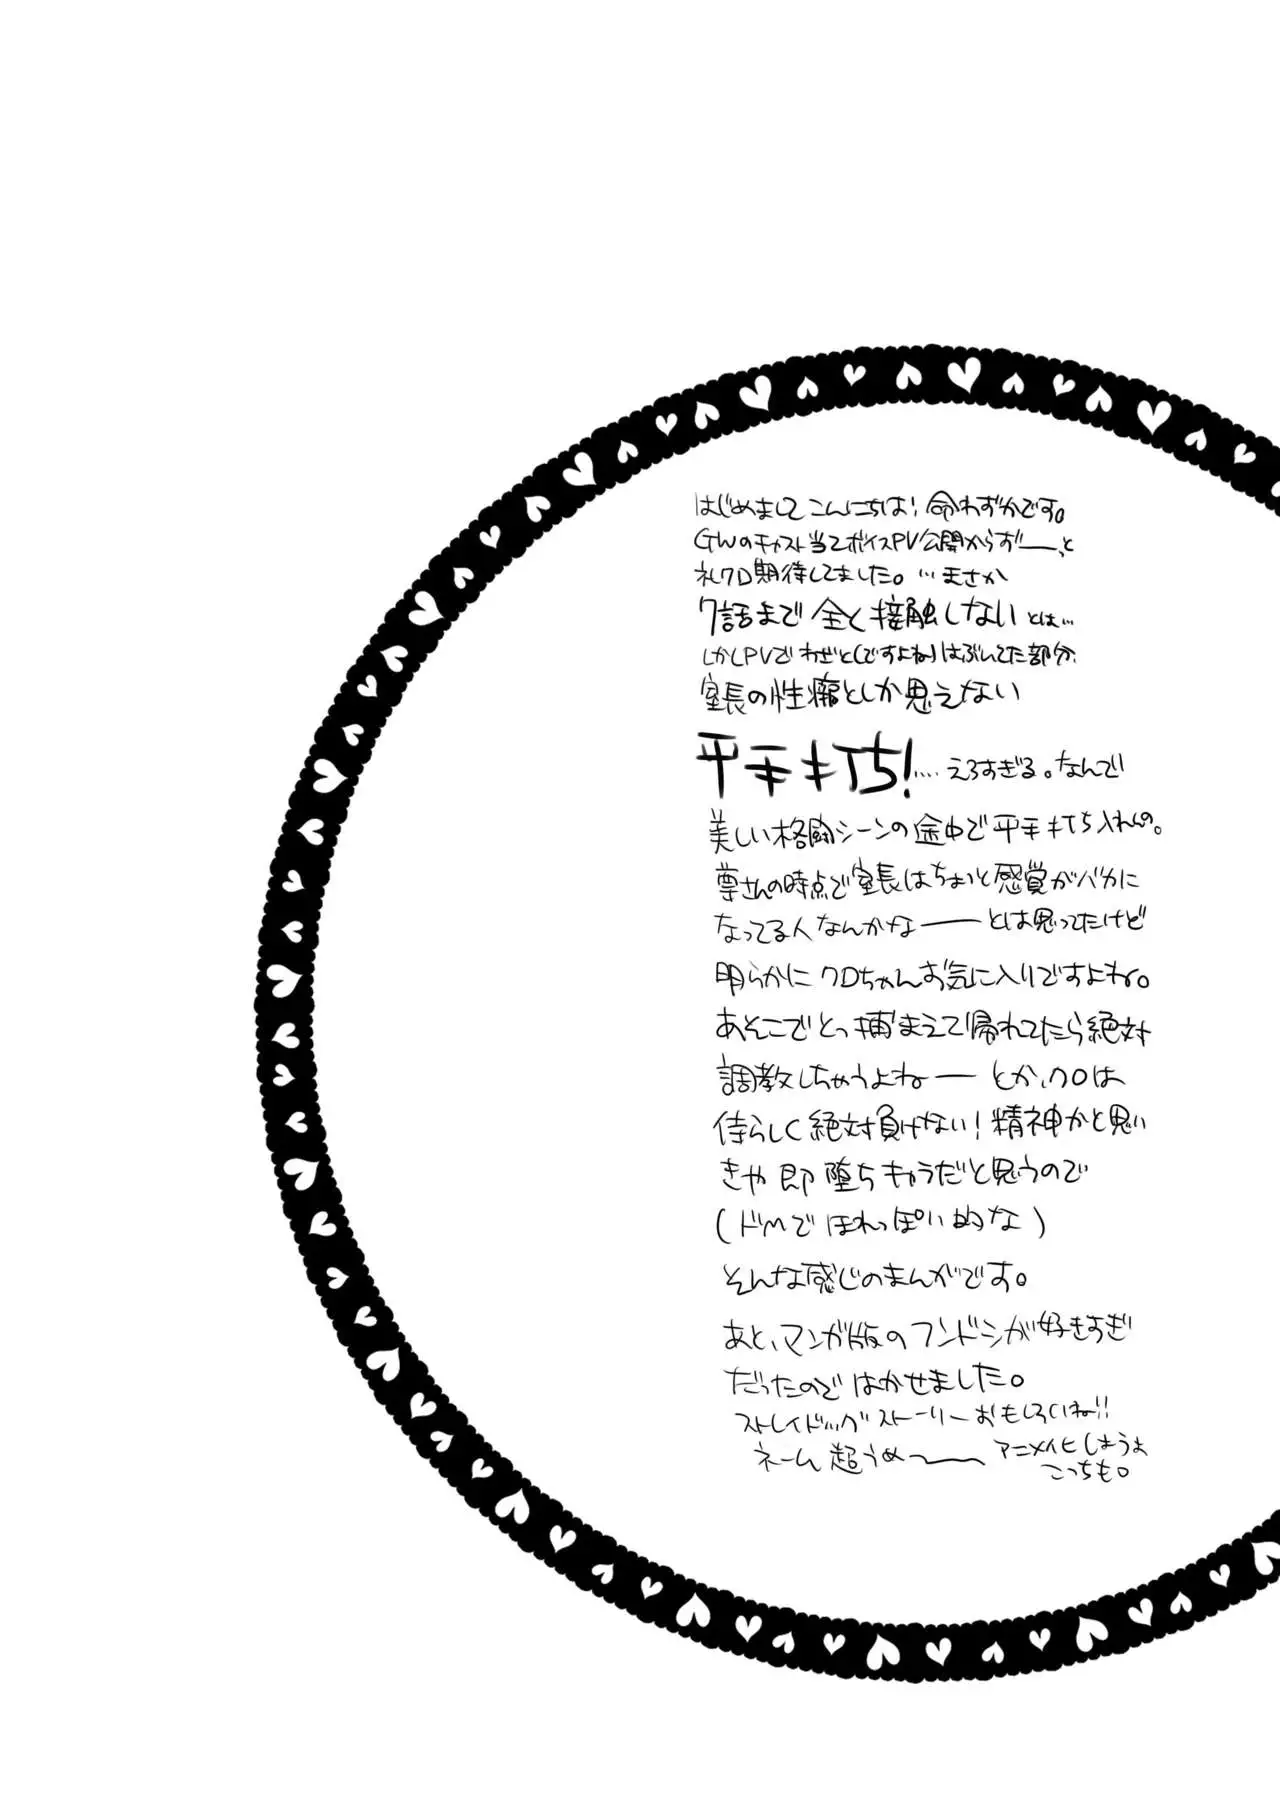 はじめましてこんにちは！命わずかです。
GWのキャスト当てボイスPV公開からずーーっと
礼クロ期待してました。…まさか
7話まで全く接触しないとは…
しかしPVでわざと(ですよね)はぶいてた部分
室長の性癖としか思えない
平手打ち！…えろすぎる。なんで
美しい格闘シーンの途中で平手打ち入れんの。
尊さんの時点で室長はちょっと感覚がバカに
なってる人なんかなーーとは思ってたけど
明らかにクロちゃんお気に入りですよね。
あそこでとっ捕まえて帰れてたら絶対
調教しちゃうよねーーとか、クロは
侍らしく絶対負けない！精神かと思い
きや即堕ちキャラだと思うので
(ドMでほれっぽい的な)
そんな感じのまんがです。
あと、マンガ版のフンドシが好きすぎ
だったのではかせました。
ストレイドッグストーリーおもしろいね!!
ネーム超うめ〜〜 アニメ化しようよ
こっちも。